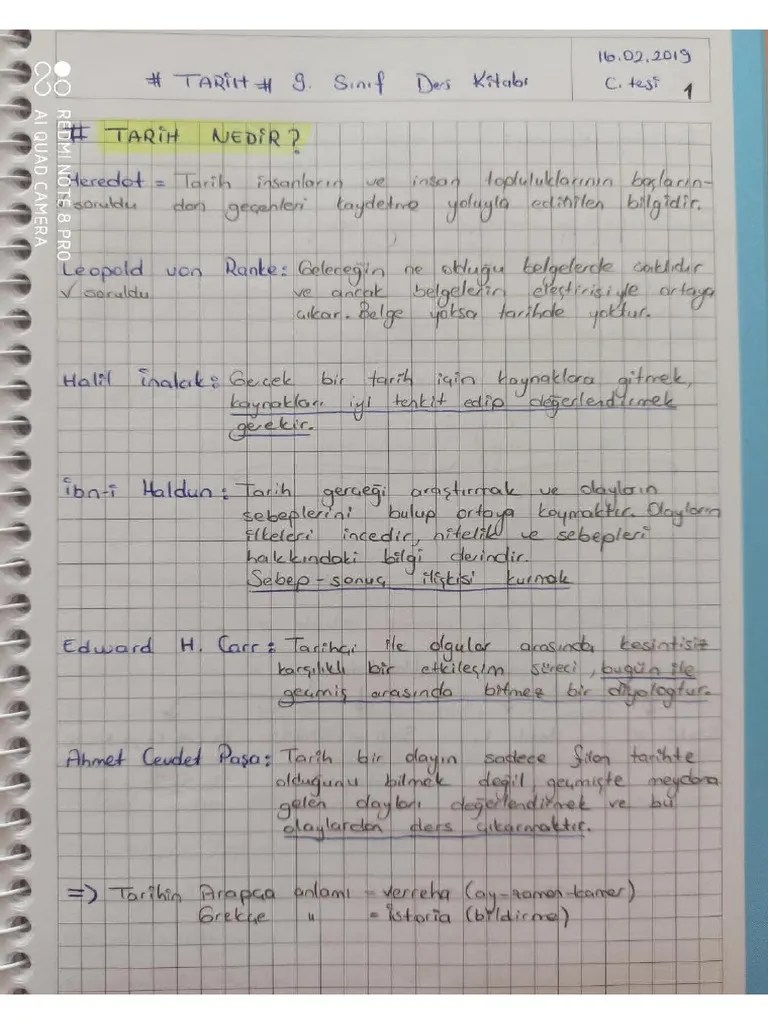 16.02.2019
# TARİH # 9. Sınıf Ders Kitabı
C. tesi 1
# TARİH NEDİR?
Heredot = Tarih insanların ve insan topluluklarının başların-
soruldu dan geçenleri kaydetme yoluyla edinilen bilgidir.
Leopold von Ranke: Geleceğin ne olduğu belgelerde saklıdır
✓ soruldu ve ancak belgelerin eleştirisiyle ortaya
çıkar. Belge yoksa tarihde yoktur.
Halil İnalcık: Gerçek bir tarih için kaynaklara gitmek,
kaynakları iyi tenkit edip değerlendirmek
gerekir.
İbn-i Haldun: Tarih gerçeği araştırmak ve olayların
sebeplerini bulup ortaya koymaktır. Olayların
ilkeleri incedir, nitelik ve sebepleri
hakkındaki bilgi derindir.
Sebep-sonuç ilişkisi kurmak
Edward H. Carr: Tarihçi ile olgular arasında kesintisiz
karşılıklı bir etkileşim süreci, bugün ile
geçmiş arasında bitmez bir diyologtur.
Ahmet Cevdet Paşa: Tarih bir olayın sadece filan tarihte
olduğunu bilmek değil geçmişte meydana
gelen olayları değerlendirmek ve bu
olaylardan ders çıkarmaktır.
=> Tarihin Arapça anlamı = verreha (ay-zaman-kamer)
Grekçe " = İstoria (bildirme)
REDMI NOTE 8 PRO
AI QUAD CAMERA